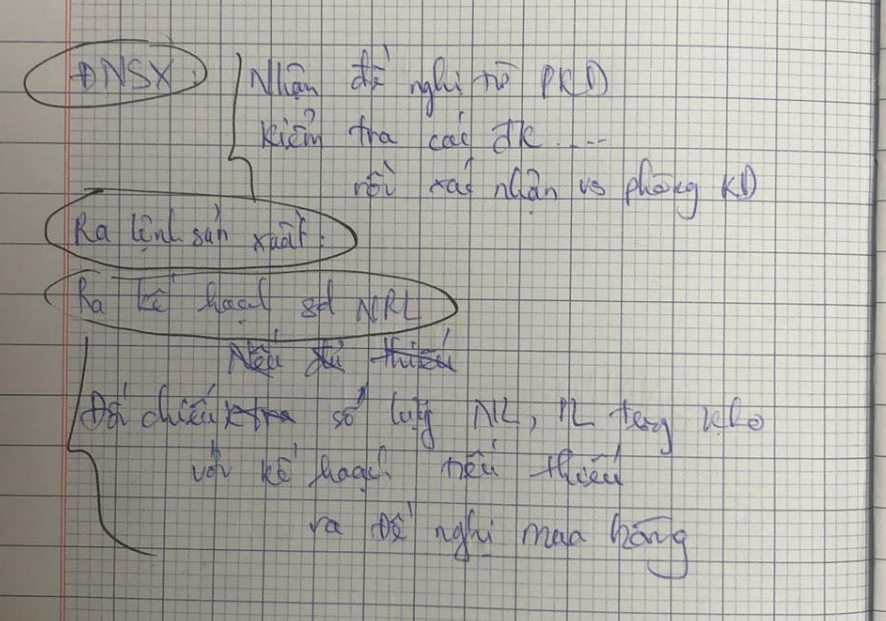 ĐNSX: Nhận đề nghị từ PKD
kiểm tra các đk ....
rồi xác nhận vs phòng KD
Ra lệnh sản xuất:
Ra kế hoạch sd NRL
Nếu đủ thiếu
Đối chiếu ktra số lượng NL, PL trong kho
với kế hoạch nếu thiếu
ra đề nghị mua hàng